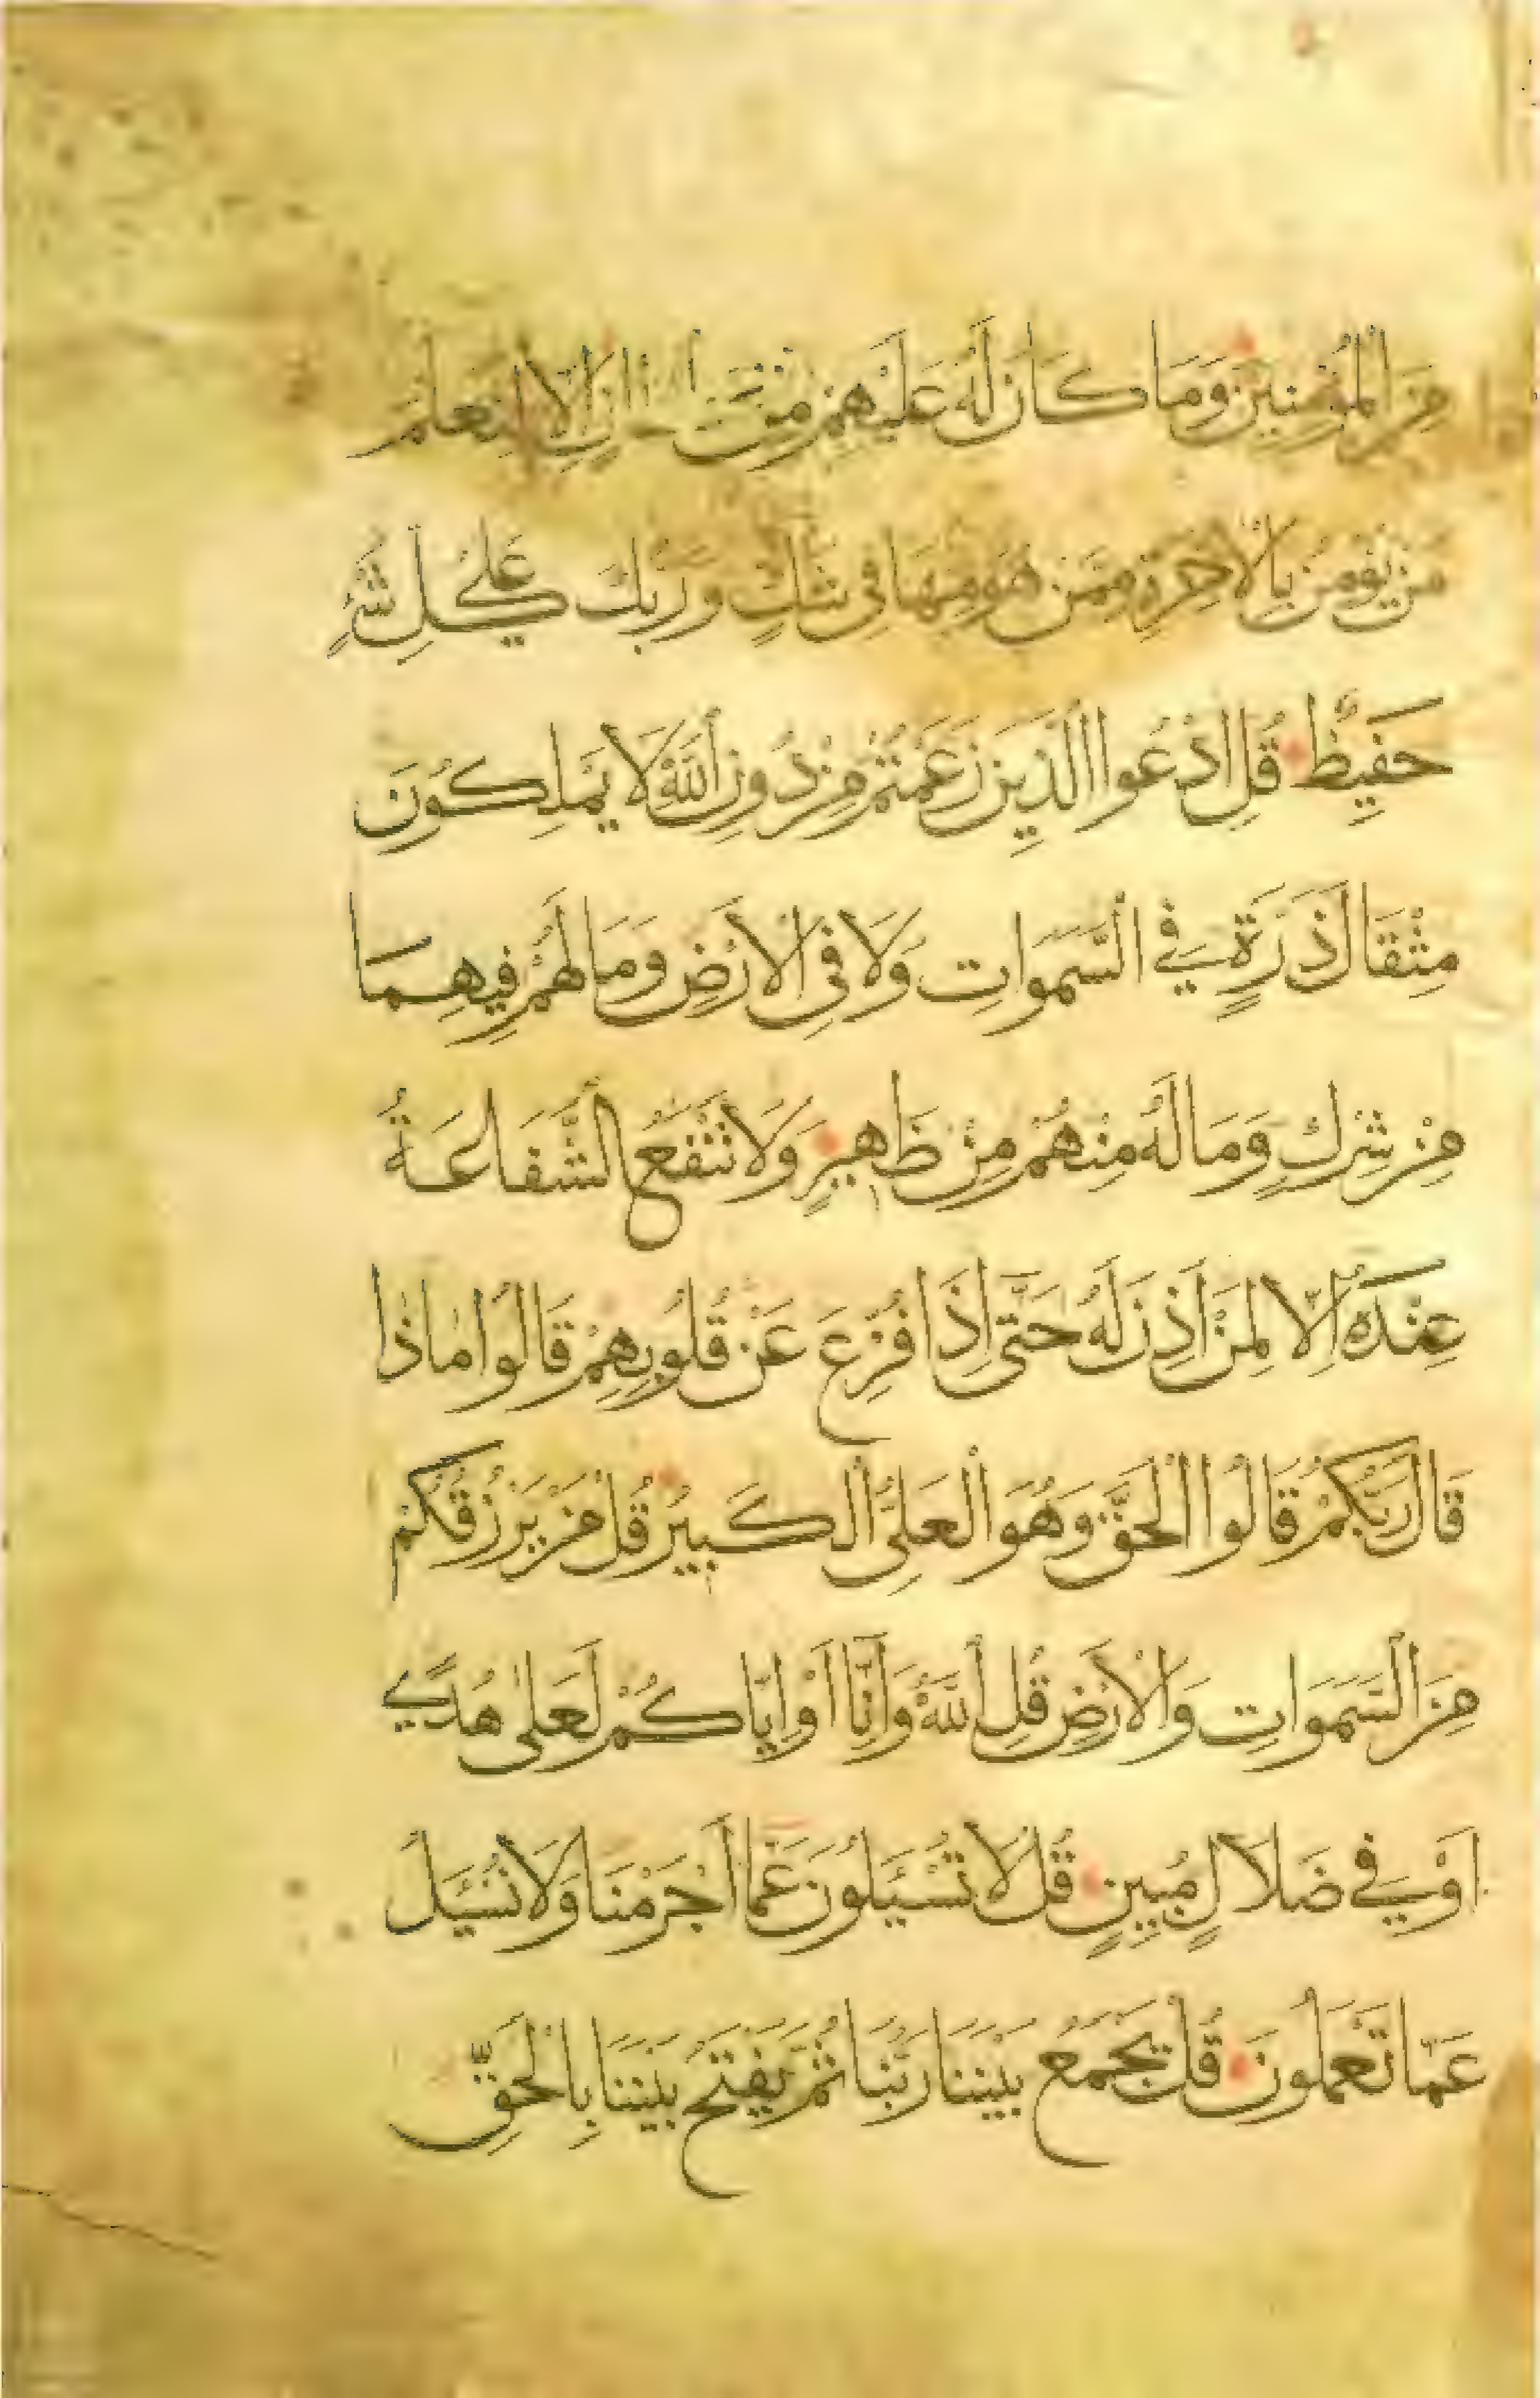 مِنَ الْمُؤْمِنِينَ وَمَا كَانَ لَهُ عَلَيْهِمْ مِنْ إِلَّا لِنَعْلَمَ
مَنْ يُؤْمِنُ بِالْآخِرَةِ مِمَّنْ هُوَ مِنْهَا فِي شَكٍّ وَرَبُّكَ عَلَىٰ كُلِّ شَيْءٍ
حَفِيظٌ قُلِ ادْعُوا الَّذِينَ زَعَمْتُمْ مِنْ دُونِ اللَّهِ لَا يَمْلِكُونَ
مِثْقَالَ ذَرَّةٍ فِي السَّمَوَاتِ وَلَا فِي الْأَرْضِ وَمَا لَهُمْ فِيهِمَا
مِنْ شِرْكٍ وَمَا لَهُ مِنْهُمْ مِنْ ظَهِيرٍ وَلَا تَنْفَعُ الشَّفَاعَةُ
عِنْدَهُ إِلَّا لِمَنْ أَذِنَ لَهُ حَتَّى إِذَا فُزِّعَ عَنْ قُلُوبِهِمْ قَالُوا مَاذَا
قَالَ رَبُّكُمْ قَالُوا الْحَقَّ وَهُوَ الْعَلِيُّ الْكَبِيرُ قُلْ مَنْ يَرْزُقُكُمْ
مِنَ السَّمَوَاتِ وَالْأَرْضِ قُلِ اللَّهُ وَإِنَّا أَوْ إِيَّاكُمْ لَعَلَىٰ هُدًى
أَوْ فِي ضَلَالٍ مُبِينٍ قُلْ لَا تُسْئَلُونَ عَمَّا أَجْرَمْنَا وَلَا نُسْئَلُ
عَمَّا تَعْمَلُونَ قُلْ يَجْمَعُ بَيْنَنَا رَبُّنَا ثُمَّ يَفْتَحُ بَيْنَنَا بِالْحَقِّ